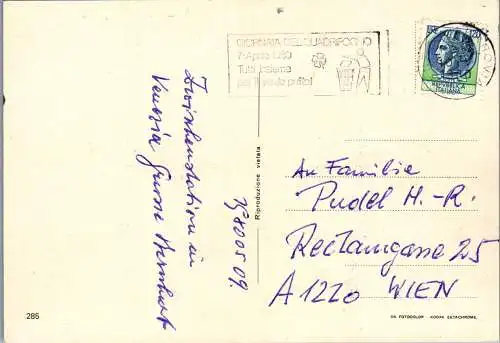 GIORNATA DEL QUADRIFOGLIO
7 Aprile 1980
Tutti insieme
per il verde pulito!
Zwischenstation in
Venezia Grüsse Bernhart
1980 05 09.
Riproduzione vietata
An Familie
Pudel H.-R.
Rectamgasse 25
A 1220 WIEN
.285
KODAK EKTACHROME.